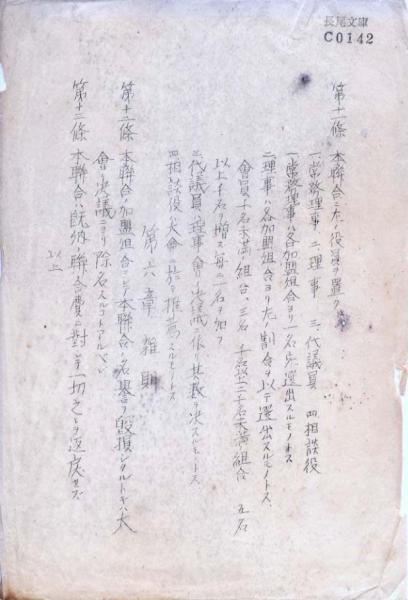 長尾文庫
C0142
第十一條 本聯合ニ左ノ役員ヲ置ク
一、常務理事 二、理事 三、代議員 四、相談役
一、常務理事ハ各加盟組合ヨリ一名宛選出スルモノトス
二、理事ハ各加盟組合ヨリ左ノ割合ヲ以テ選出スルモノトス
會員千名未満ノ組合 三名 千名以上二千名未満ノ組合 五名
以上千名ヲ増ス毎ニ一名ヲ加フ
三、代議員ハ理事會ノ決議ニ依リ其都度決スルモノトス
四、相談役ハ大會ニ於テ推薦スルモノトス
第六章 雑則
第十二條 本聯合ノ加盟組合ニシテ本聯合ノ名譽ヲ毀損シタルトキハ大
會ノ決議ニヨリ除名スルコトアルベシ
第十三條 本聯合ハ既納ノ聯合費ニ對シ一切之ヲ返戻セズ
以上